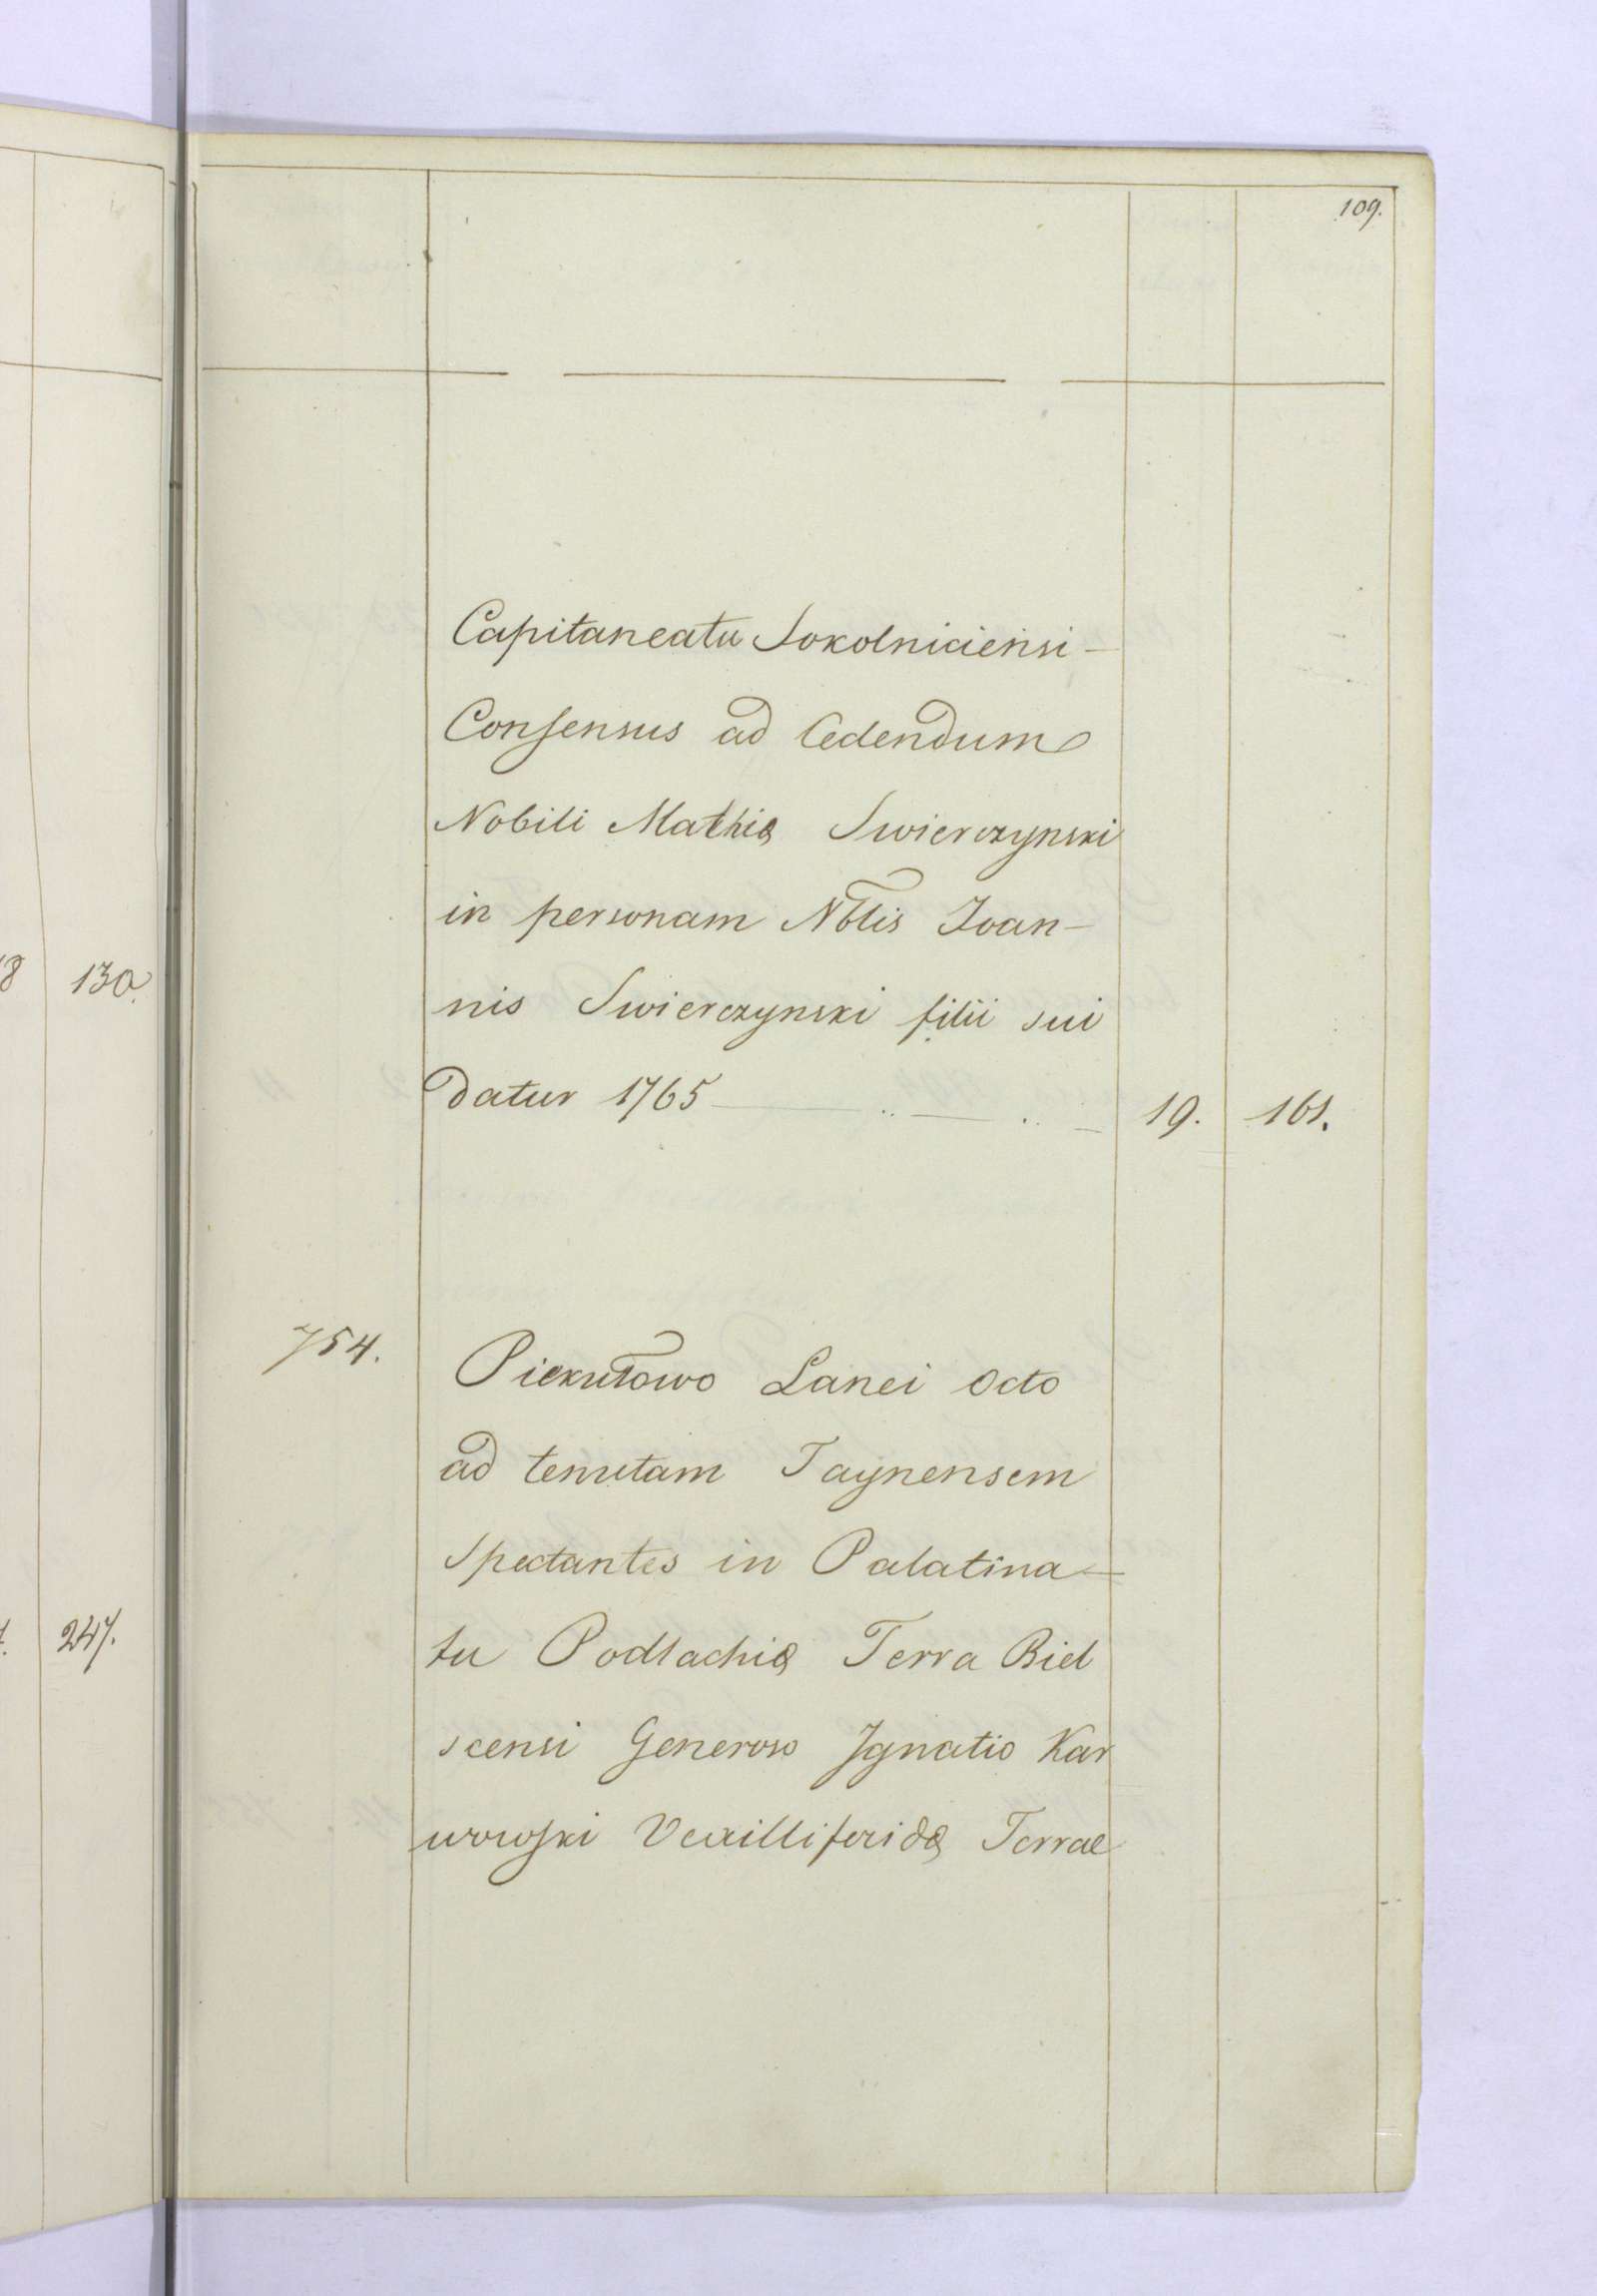 109.
Capitaneatu Sokolniciensi –
Consensus ad Cedendum
Nobili Mathiæ Swierczynski
in personam Nblis Joan-
nis Swierczynski filii sui
datur 1765 19. 161.
130.
754. Piekutowo Lanei Octo
ad tenutam Taynensem
Spectantes in Palatina-
tu Podlachiæ Terra Biel
scensi Generoso Ignatio Kar
wowski Vexilliferidæ Terrae
247.